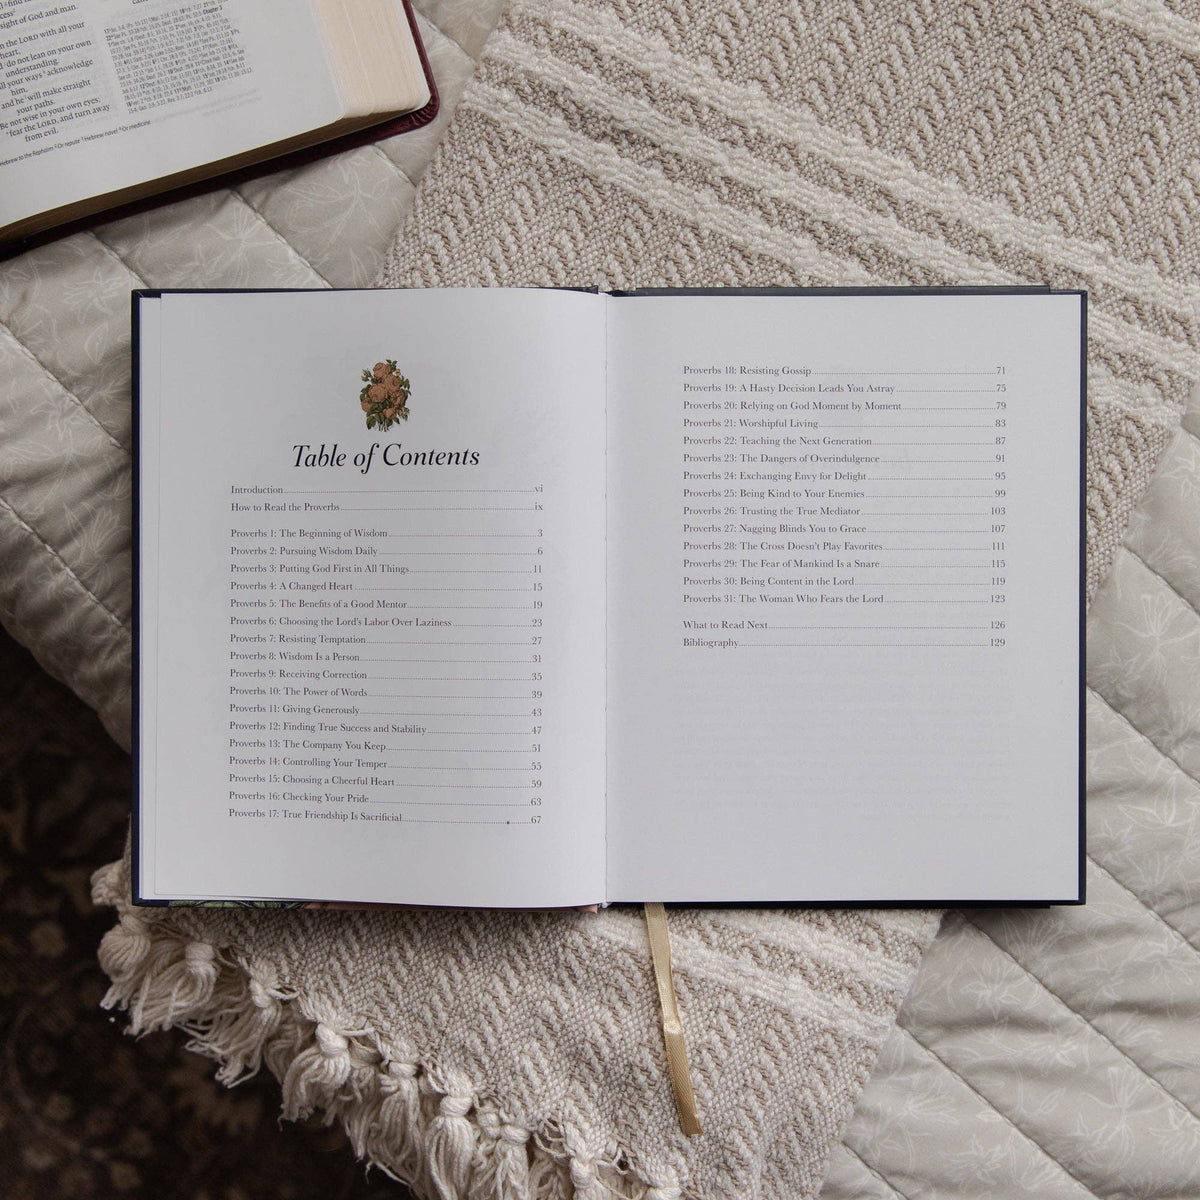 sight of God and man.
n the LORD with all your
heart,
do not lean on your own
understanding.
all your ways acknowledge
him,
and he will make straight
your paths.
Be not wise in your own eyes;
fear the LORD, and turn away
from evil.
Table of Contents
Introduction vi
How to Read the Proverbs ix
Proverbs 1: The Beginning of Wisdom 3
Proverbs 2: Pursuing Wisdom Daily 6
Proverbs 3: Putting God First in All Things 11
Proverbs 4: A Changed Heart 15
Proverbs 5: The Benefits of a Good Mentor 19
Proverbs 6: Choosing the Lord's Labor Over Laziness 23
Proverbs 7: Resisting Temptation 27
Proverbs 8: Wisdom Is a Person 31
Proverbs 9: Receiving Correction 35
Proverbs 10: The Power of Words 39
Proverbs 11: Giving Generously 43
Proverbs 12: Finding True Success and Stability 47
Proverbs 13: The Company You Keep 51
Proverbs 14: Controlling Your Temper 55
Proverbs 15: Choosing a Cheerful Heart 59
Proverbs 16: Checking Your Pride 63
Proverbs 17: True Friendship Is Sacrificial 67
Proverbs 18: Resisting Gossip 71
Proverbs 19: A Hasty Decision Leads You Astray 75
Proverbs 20: Relying on God Moment by Moment 79
Proverbs 21: Worshipful Living 83
Proverbs 22: Teaching the Next Generation 87
Proverbs 23: The Dangers of Overindulgence 91
Proverbs 24: Exchanging Envy for Delight 95
Proverbs 25: Being Kind to Your Enemies 99
Proverbs 26: Trusting the True Mediator 103
Proverbs 27: Nagging Blinds You to Grace 107
Proverbs 28: The Cross Doesn't Play Favorites 111
Proverbs 29: The Fear of Mankind Is a Snare 115
Proverbs 30: Being Content in the Lord 119
Proverbs 31: The Woman Who Fears the Lord 123
What to Read Next 126
Bibliography 129